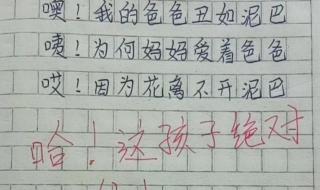 噢！我的爸爸丑如泥巴
咦！为何妈妈爱着爸爸
哎！因为花离不开泥巴
哈！这孩子绝对